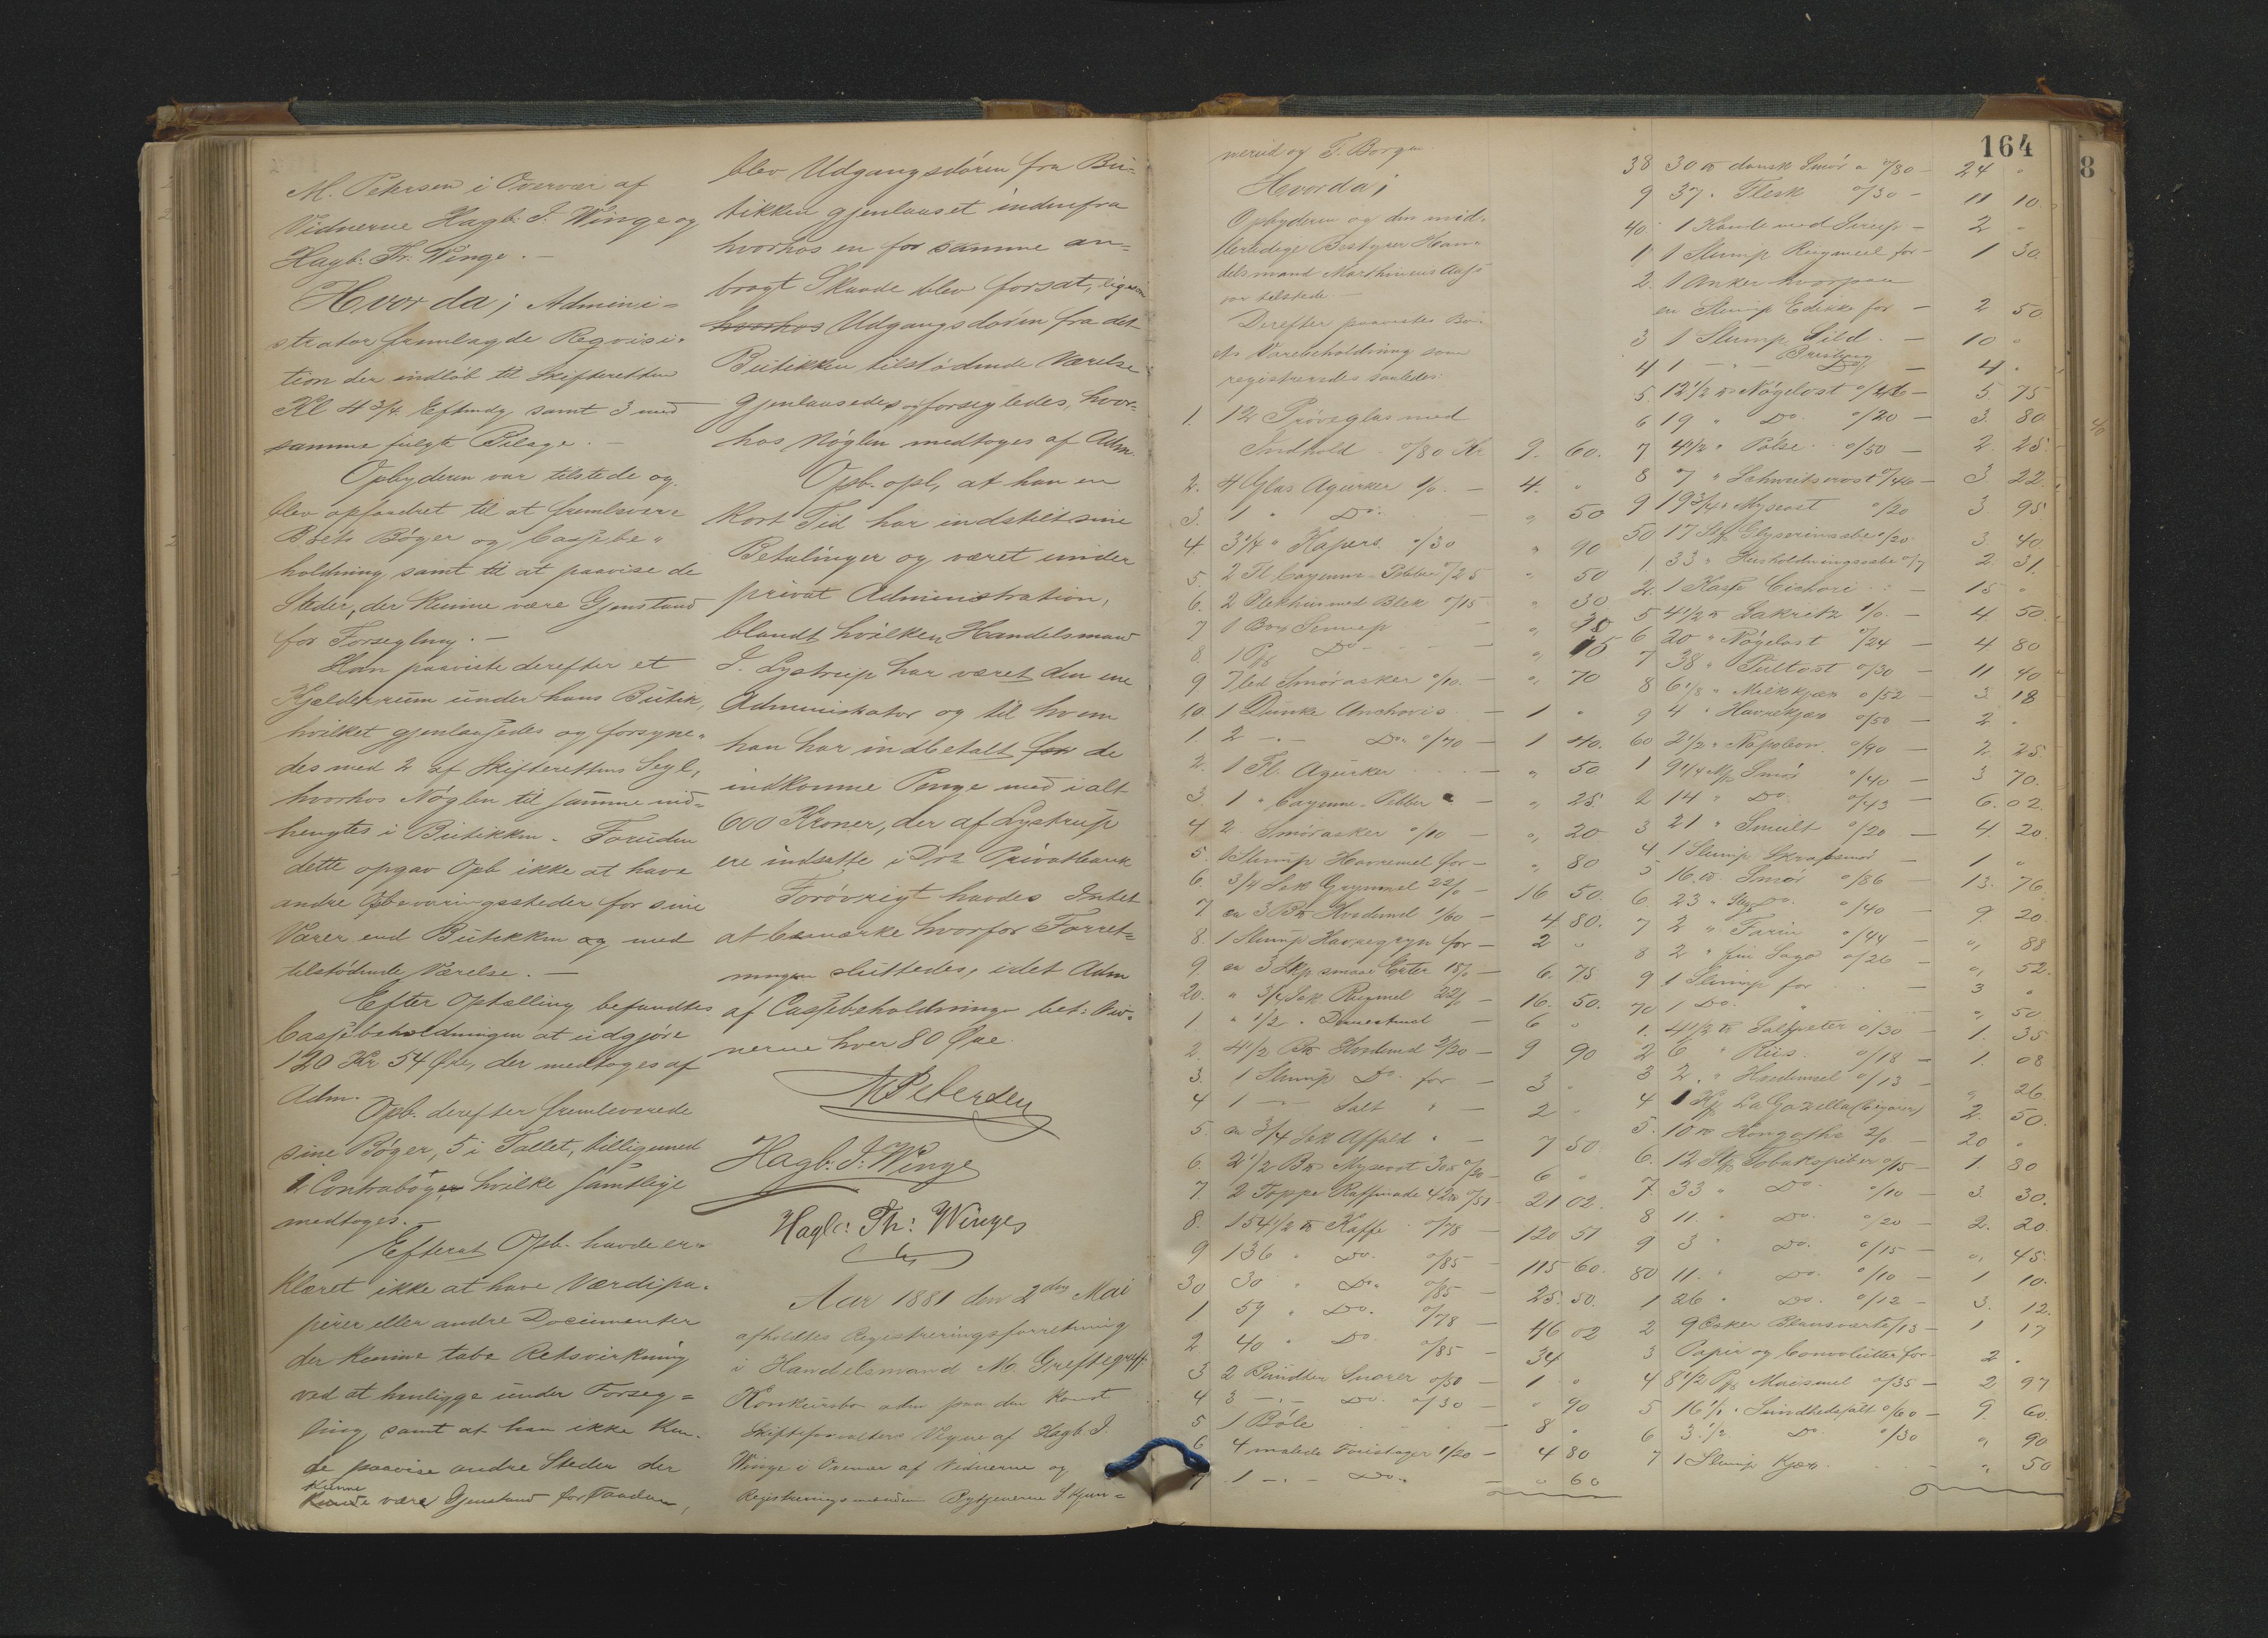 M. Petersen i Overvær af
Vidnerne Hagb. J. Winge og
Hagb. Th. Winge. —
Hvorda; Admini=
strator fremlagde Reqvisi=
tion der indløb til Skifteretten
Kl 4 3/4 Eftmdg samt 3 med
samme fulgte Bilage. —
Opbyderen var tilstede og
blev opfordret til at fremlevere
Boets Bøger og Cassebe=
holdning samt til at paavise de
Steder, der kunne være Gjenstand
for Forsegling. —
Han paaviste derefter et
Kjælderrum under hans Butik,
hvilket gjenlaasedes og forsyne=
des med 2 af Skifterettens Segl,
hvorhos Nøglen til samme ind=
hengtes i Butikken. Foruden
dette opgav Opb ikke at have
andre Opbevaringssteder for sine
Varer end Butikken og med
tilstødende Værelse. —
Efter Optælling befandtes
Cassebeholdningen at udgjøre
120 Kr 54 Øre, der medtoges af
Adm. —
Opb. derefter fremleverede
sine Bøger, 5 i Tallet, tilligemed
2 Contrabøger hvilke samtlige
medtoges. —
Efterat Opb. havde er=
klæret ikke at have Værdipa=
pirer eller andre Documenter
der kunne tabe Retsvirkning
ved at henligge under Forseg=
ling samt at han ikke kun=
de paavise andre Steder der
kunne
kunde være Gjenstand for Saadan,
blev Udgangsdøren fra Bu=
tikken gjenlaaset indenfra
hvorhos en for samme an=
bragt Skaade blev forsat, ligesom
hvorhos Udgangsdøren fra det
Butikken tilstødende Værelse
gjenlaasedes og forsegledes, hvor=
hos Nøglen medtoges af Adm.
Opb. opl, at han en
kort Tid har indstilt sine
Betalinger og været under
privat Administration,
blandt hvilken Handelsmand
J. Lystrup har været den ene
Administrator og til hvem
han har indbetalt for de
indkomne Penge med ialt
600 Kroner, der af Lystrup
ere indsatte i Dr: Privatbank
Forøvrigt havdes Intet
at bemærke hvorfor Forret=
ningen sluttedes, idet Adm
af Cassebeholdningen bet: Vid=
nerne hver 80 Øre.
M Petersen
Hagb. J. Winge
Hagb: Th: Winge
Aar 1881 den 2den Mai
afholdtes Registreringsforretning
i Handelsmand M. Greftegreffs
Konkursbo adm paa den konst
Skifteforvalters Vegne af Hagb. J.
Winge i Overvær af Vidnerne og
Registreringsmændene Bytjenerne Skjen=
164
nerud og T. Borgen
Hvorda;
Opbyderen og den mid=
lertidige Bestyrer Han=
delsmand Marthinius Aas
var tilstede. —
Derefter paavistes Bo=
ets Varebeholdning som
registreredes saaledes:
1. 12 Prøveglas med
Indhold o/80 Kr 9. 60.
2. 4 Glas Agurker 1/o. — 4. "
3. 1 " Do. — " 50
4. 3 1/4 " Kapers o/30 " 90
5. 2 Fl. Cayenne-Pebber o/25 " 50
6. 2 Blekhus med Blek o/15 " 30
7 1 Box Sennep — "
8. 1 Do — " 15
9 7 Smøræsker o/10. — " 70
10. 1 Dunke Anchovis — 1 "
1. 2 —"— Do. o/70 — 1 40.
2. 1 Fl. Agurker — " 50
3. 1 " Cayenne-Pebber — " 25
4 2 Smøræsker o/10 — " 20
5. 1 Slump Havremel for — " 80
6. 3/4 Sæk Grynmel 22/o — 16 50.
7 ca 3 B℔ Hvedemel 1/60 — 4 80.
8. 1 Slump Havregryn for — 2 "
9. ca 3 Skp smaae Erter — 6 75
20. " 3/4 Sæk Rugmel 22/o — 16. 50.
1. " 1/2 " — 6 "
2. 4 1/2 B℔ Hvedemel 2/20 — 9 90
3. 1 Slump Do. for — 3 "
4 1 —"— Salt " — 2 "
5. ca 3/4 Sæk Affald " — 7 50
6. 2 1/2 B℔ Myseost 30℔ o/20 — 6 "
7. 2 Toppe Raffinade 42℔ o/51 — 21 02.
8. 154 1/2 ℔ Kaffe o/78 — 120 51
9 136 " Do. o/85 — 115 60.
30 30 " Do. o/85 — 25. 50.
1 59 " Do. o/78 — 46 02
2. 40 " Do. o/85 — 34
3 2 Bundter Snorer o/50 — 1 "
4 3 —"— Do. o/30 — " 90
5 1 Bøle — 8 "
6 4 malede Foustager 1/20 — 4 80
7 1 —"— Do. — " 60
38 30 ℔ dansk Smør a o/80 — 24 "
9 37 " Flesk o/30 — 11 10.
40 1 Kande med Sirup — 2 "
1 1 Slump Rugmeel for — 1 30
2. 1 Anker hvorpaa
en Slump Edikke for — 2 50
3 1 Slump Sild. — 10 "
Brisling
4 1 —"— Do. — 4 "
5. 12 1/2 ℔ Nøgelost o/46 — 5. 75
6 19 " Do. o/20 — 3. 80.
7 4 1/2 " Pølse o/50 — 2. 25.
8 7 " Schweitserost o/46 — 3. 22.
9 19 3/4 " Myseost o/20 3. 95
50 17 Stk. Glyserinsæbe o/20 3. 40
1. 33 " Husholdningssæbe o/7 2. 31.
2. 1 Kasse Cichori — 15 "
5 4 1/2 ℔ Lakritz 1/o. — 4 50.
6 20 " Nøgelost o/24 — 4 80
7 38 " Pultost o/30 — 11 40
8 6 1/8 " o/52 — 3 18
9 4 " o/50 — 2. "
60 2 1/2 " Napoleon o/90 — 2. 25.
1 9 1/4 Smør o/40 — 3 70.
2 14 " Do. o/43 — 6. 02.
3 21 " Smult o/20 — 4. 20.
4. 1 Slump Skrabsmør — 1 "
5 16. ℔ Smør o/86 — 13. 76.
6. 23 " Do. o/40 — 9. 20.
7 2 " Farin o/44 — " 88
8 2 " fin Sago o/26 — " 52.
9 1 Slump for — 3 "
70 1 Do. " " 50
1. 4 1/2 ℔ Salpeter o/30 — 1. 35
2 6 " Riis. o/18 — 1. 08
3 2. " Hvedemel o/13 — " 26.
4 1 Ks. La Gazella (Cigarer) 2. 50.
5. 10 ℔ Hongothe 2/o — 20 "
6. 12 Stk Tobakspiber o/15 — 1. 80
7. 33 " Do. o/10 — 3. 30.
8 11. " Do. o/20 — 2. 20
9 3 " Do. o/15 — " 45.
80 11. " Do. o/10 — 1 10.
1 26 " Do. o/12 — 3. 12.
2 9 Æsker Blanksværte o/13 — 1 17
3 Papir og Convolutter for — 2 "
4 8 1/2 Maismel o/35 — 2 97
5 16 1/1 " Sundhedssalt o/60 — 9. 60.
6 3 1/2 Do o/30 " 90
7 1 Slump — " 50
8